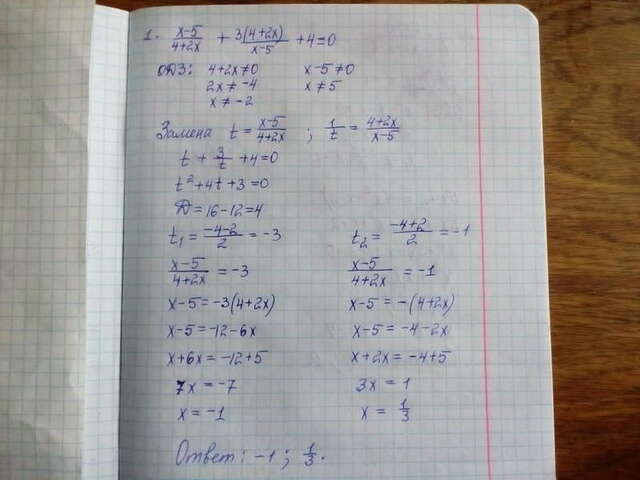 1. (x-5)/(4+2x) + 3(4+2x)/(x-5) + 4=0
ОДЗ: 4+2x≠0 x-5≠0
2x≠-4 x≠5
x≠-2
Замена t = (x-5)/(4+2x) ; 1/t = (4+2x)/(x-5)
t + 3/t + 4=0
t²+4t+3=0
D=16-12=4
t₁ = (-4-2)/2 = -3 t₂ = (-4+2)/2 = -1
(x-5)/(4+2x) = -3 (x-5)/(4+2x) = -1
x-5=-3(4+2x) x-5=-(4+2x)
x-5=-12-6x x-5=-4-2x
x+6x=-12+5 x+2x=-4+5
7x=-7 3x=1
x=-1 x = 1/3
Ответ: -1; 1/3.